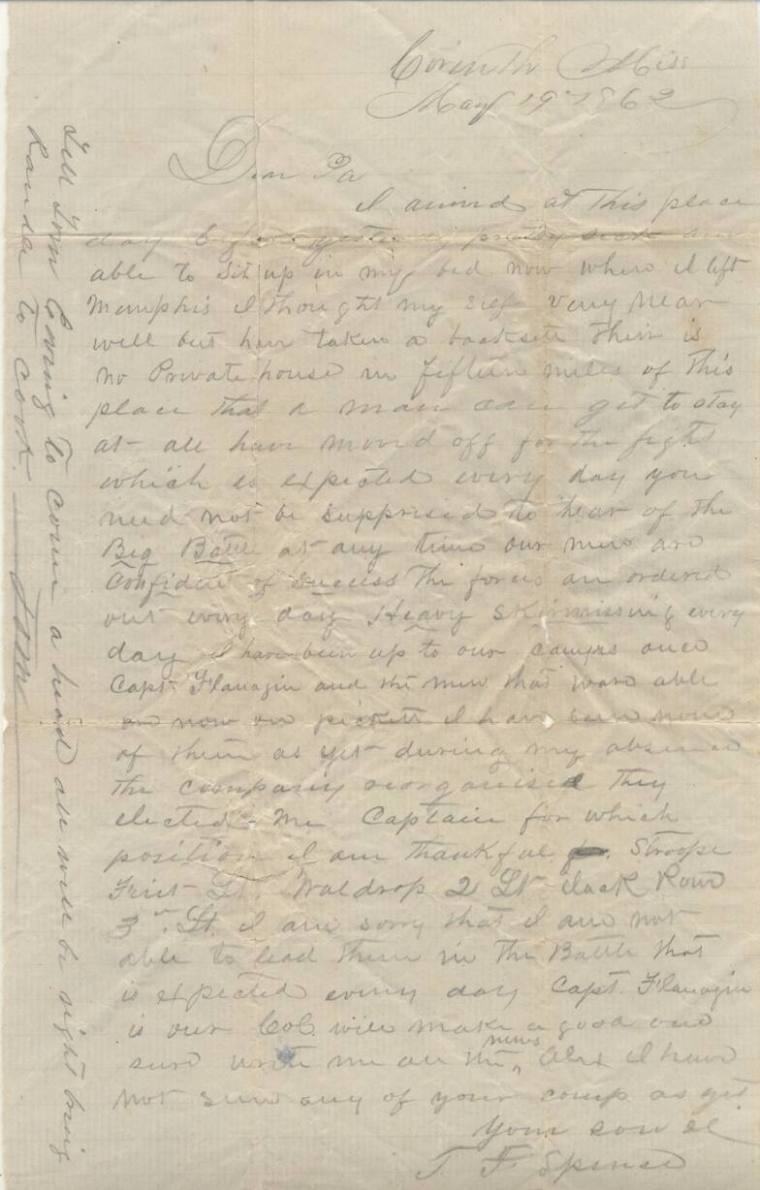 Corinth Miss
May 19th 1862
Dear Pa
I arived at this place
day before yesterday pretty sick am
able to sit up in my bed now when I left
Memphis I thought my self very near
well but have taken a backsett their is
no Private house in fifteen miles of this
place that a man can get to stay
at all have moved off for the fight
which is expected every day you
need not be supprised to hear of the
Big Battle at any time our men are
Confident of Success the forces are ordered
out every day Heavy skirmissing every
day I have been up to our camps once
Capt. Flanagin and the men that ware able
are now on pickett I have seen none
of them as yet during my absence
the company reorganised they
elected me Captain for which
position I am thankful Stroope
First Lt. Waldrop 2 Lt Jack Rowe
3rd. Lt. I am sorry that I am not
able to lead them in the Battle that
is expected every day Capt. Flanagin
is our Col. will make a good one
sure write me all the news, Alex I have
not seen any of your comp as yet
Your son &c
T. F. Spence
Tell Tom Coming to come a head all will be right bring
Landa to cook. Tom